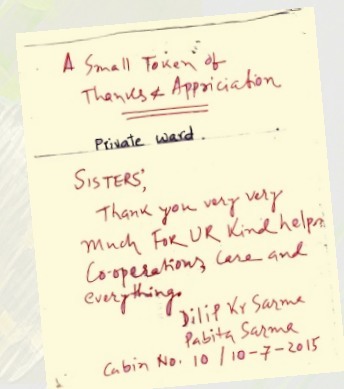 A Small Token of
Thanks & Appriciation
Private ward.
SISTERS',
Thank you very very
much FOR UR Kind helps
Co-operations, Care and
everything.
Dilip Kr Sarma
Pabita Sarma
Cabin No. 10 / 10-7-2015